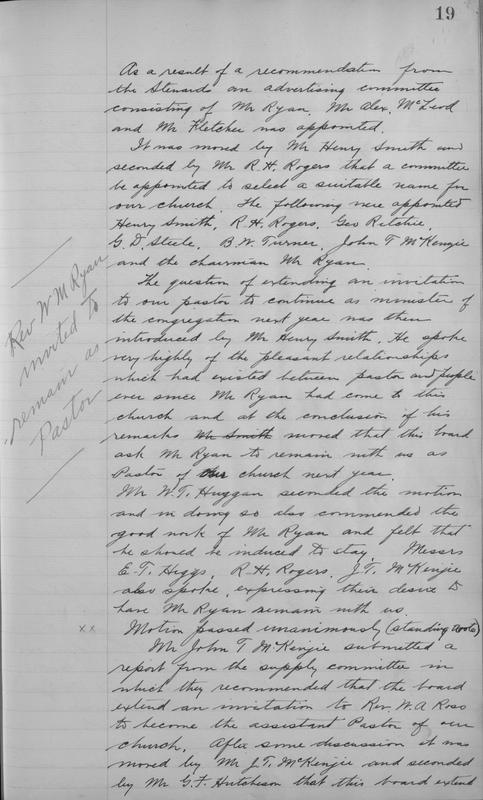 19
As a result of a recommendation from
the Stewards an advertising committee
consisting of Mr Ryan, Mr Alex. McLeod
and Mr Fletcher was appointed.
It was moved by Mr Henry Smith and
seconded by Mr R. H. Rogers that a committee
be appointed to select a suitable name for
our church. The following were appointed
Henry Smith, R. H. Rogers, Geo Ritchie,
G. D. Steele, B. W. Turner, John T McKenzie
and the chairman Mr Ryan.
The question of extending an invitation
to our pastor to continue as minister of
the congregation next year was then
introduced by Mr Henry Smith. He spoke
very highly of the pleasant relationships
which had existed between pastor and people
ever since Mr Ryan had come to this
church and at the conclusion of his
remarks Mr Smith moved that this board
ask Mr Ryan to remain with us as
Pastor of our church next year.
Mr W. T. Huggan seconded the motion
and in doing so also commended the
good work of Mr Ryan and felt that
he should be induced to stay. Messrs
E. T. Higgs, R. H. Rogers, J. T. McKenzie
also spoke, expressing their desire to
have Mr Ryan remain with us.
x x Motion passed unanimously (standing vote)
Mr John T McKenzie submitted a
report from the supply committee in
which they recommended that the board
extend an invitation to Rev. W. A Ross
to become the assistant Pastor of our
church. After some discussion it was
moved by Mr J. T. McKenzie and seconded
by Mr G. F. Hutcheson that this board extend
Rev W M Ryan
invited to
remain as
Pastor